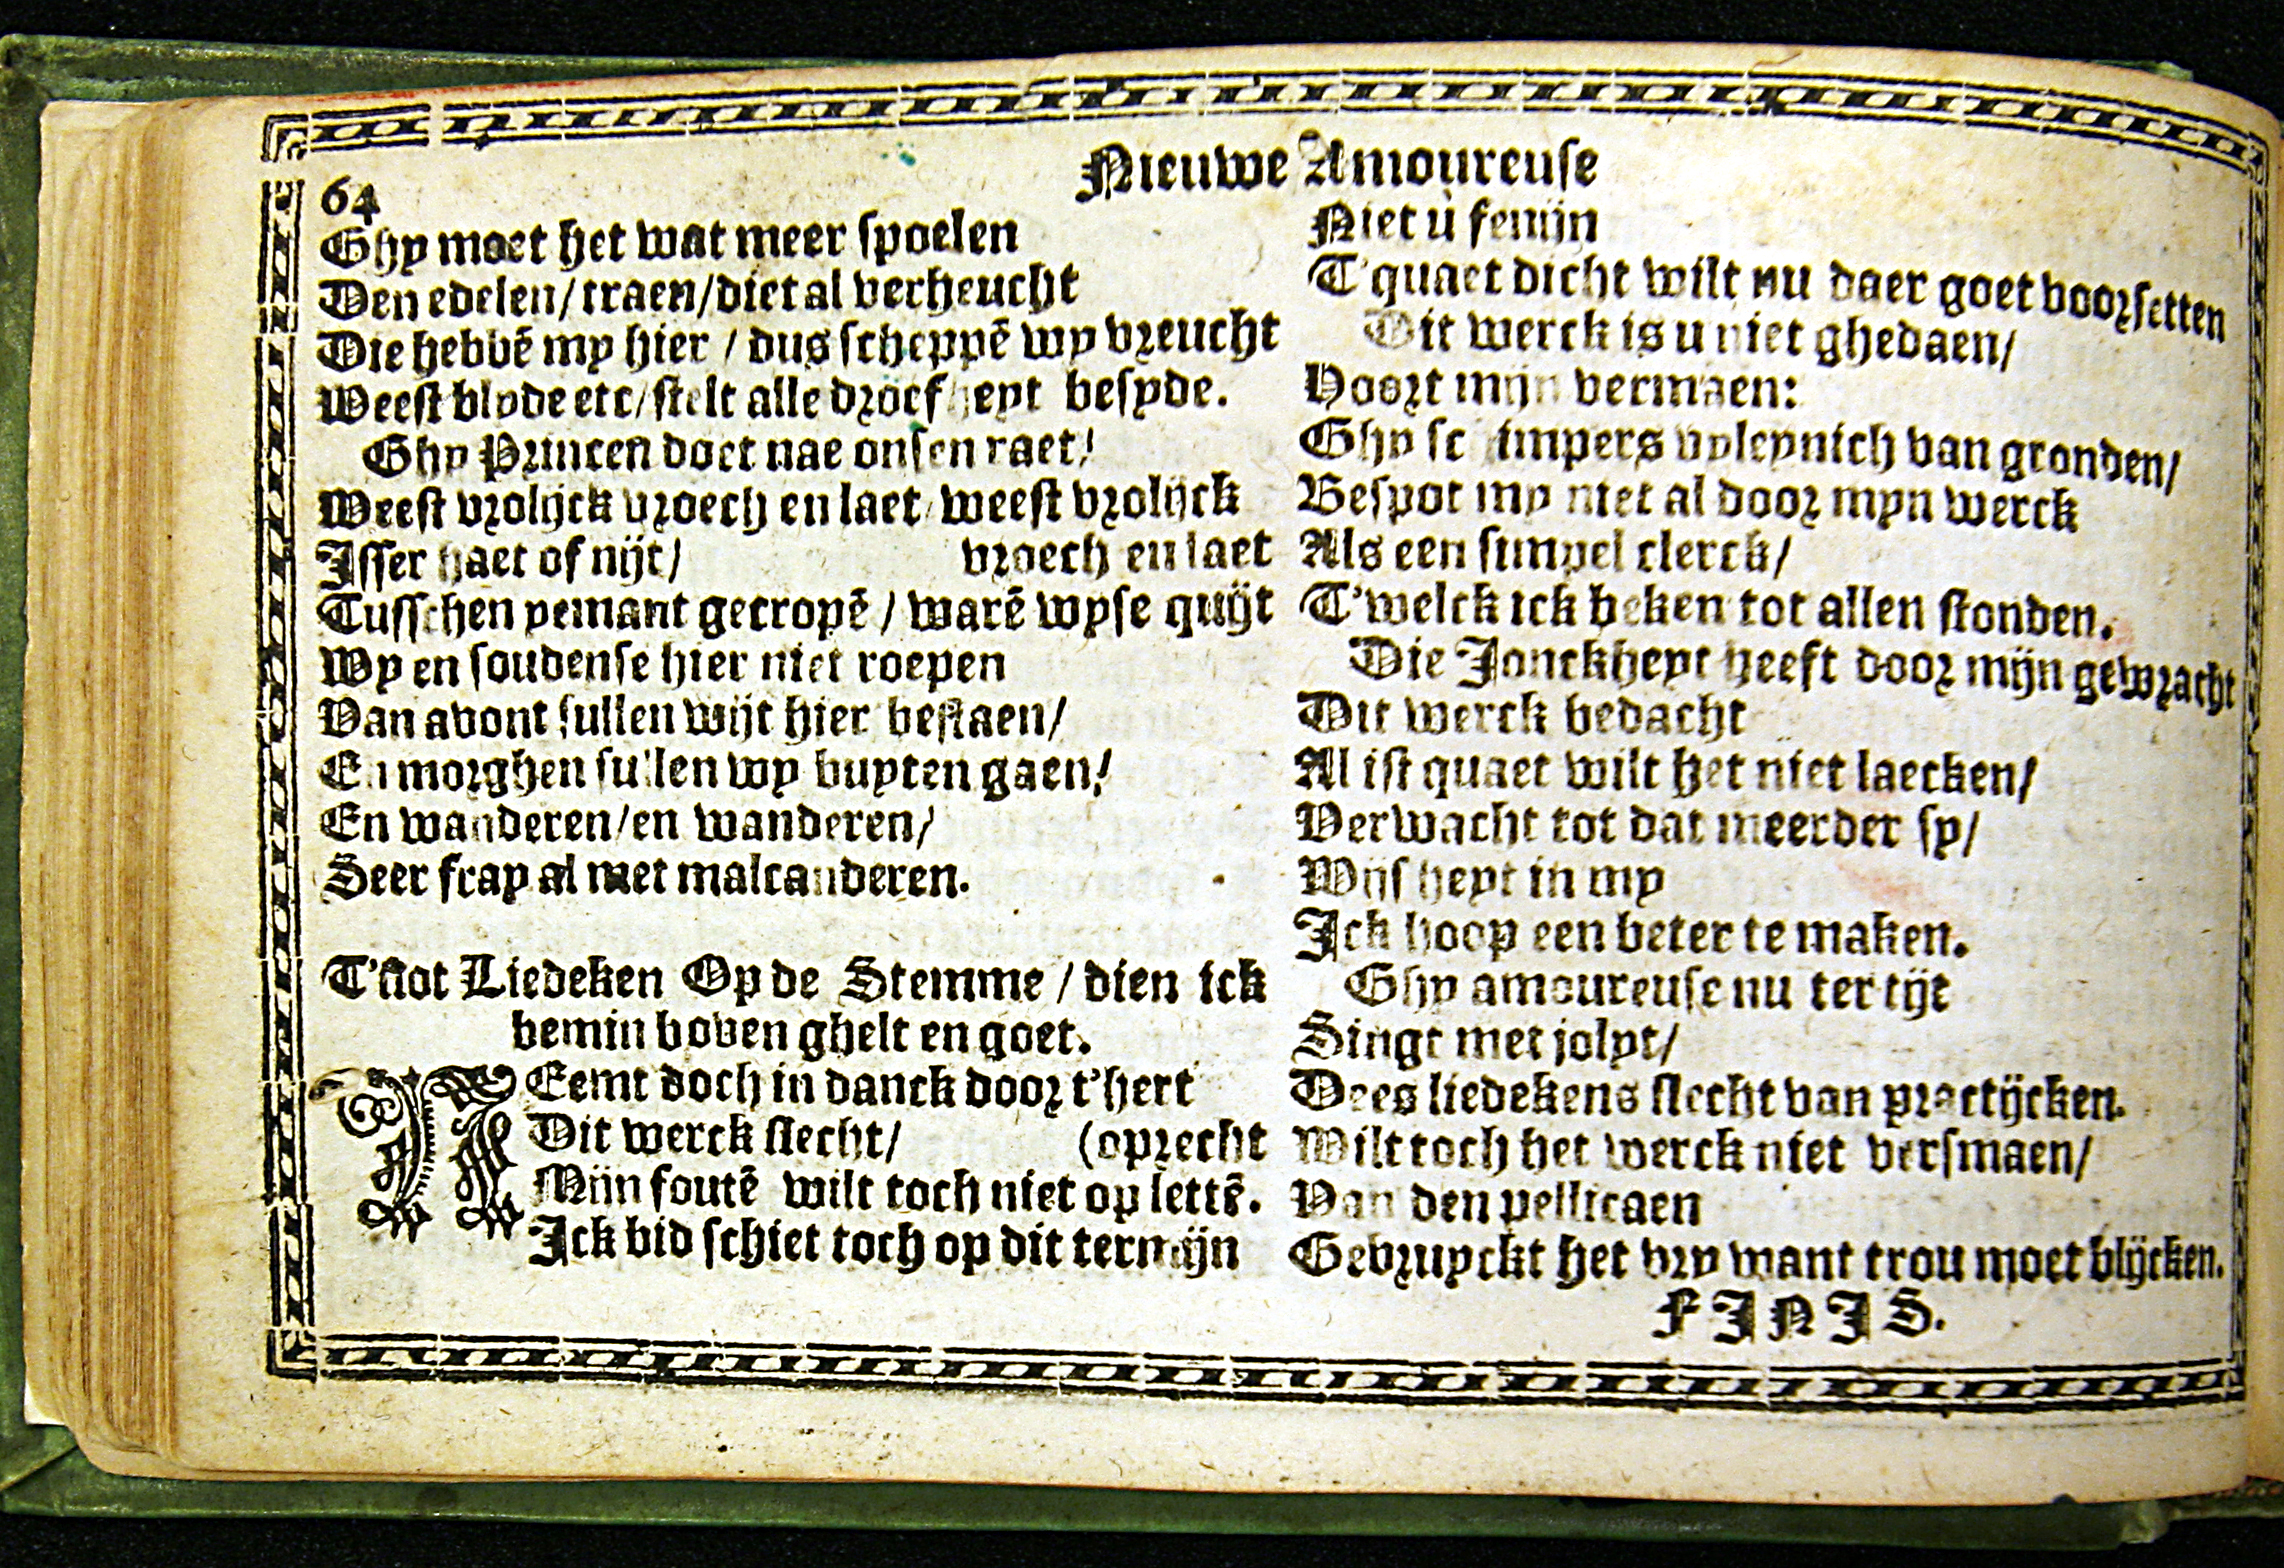 Nieuwe Amoureuse
64
Ghy moet het wat meer spoelen
Den edelen/traen/diet al verheucht
Die hebbē my hier / dus scheppē wy vreucht
Weest blyde etc/stelt alle droefheyt besyde.
Ghy Princen doet nae onsen raet/
Weest vrolijck vroech en laet/weest vrolijck
Isser haet of nijt/ vroech en laet
Tusschen yemant gecropē / warē wyse quijt
Wy en soudense hier niet roepen
Van avont sullen wijt hier bestaen/
En morghen sullen wy buyten gaen/
En wanderen/en wanderen/
Seer fray al met malcanderen.
T'slot Liedeken Op de Stemme / dien ick
bemin boven ghelt en goet.
NEemt doch in danck door t'hert
Dit werck slecht/ (oprecht
Mijn foutē wilt toch niet op lettē.
Ick bid schiet toch op dit termijn
Niet ù fenijn
T'quaet dicht wilt nu daer goet voorsetten
Dit werck is u niet ghedaen/
Hoort mijn vermaen:
Ghy schimpers vyleynich van gronden/
Bespot my niet al door myn werck
Als een simpel clerck/
T'welck ick beken tot allen stonden.
Die Jonckheyt heeft door mijn gewracht
Dit werck bedacht
Al ist quaet wilt het niet laecken/
Verwacht tot dat meerder sy/
Wijsheyt in my
Ick hoop een beter te maken.
Ghy amoureuse nu ter tijt
Singt met jolyt/
Dees liedekens slecht van practijcken.
Wilt toch het werck niet versmaen/
Van den pellicaen
Gebruyckt het vry want trou moet blijcken.
FINIS.